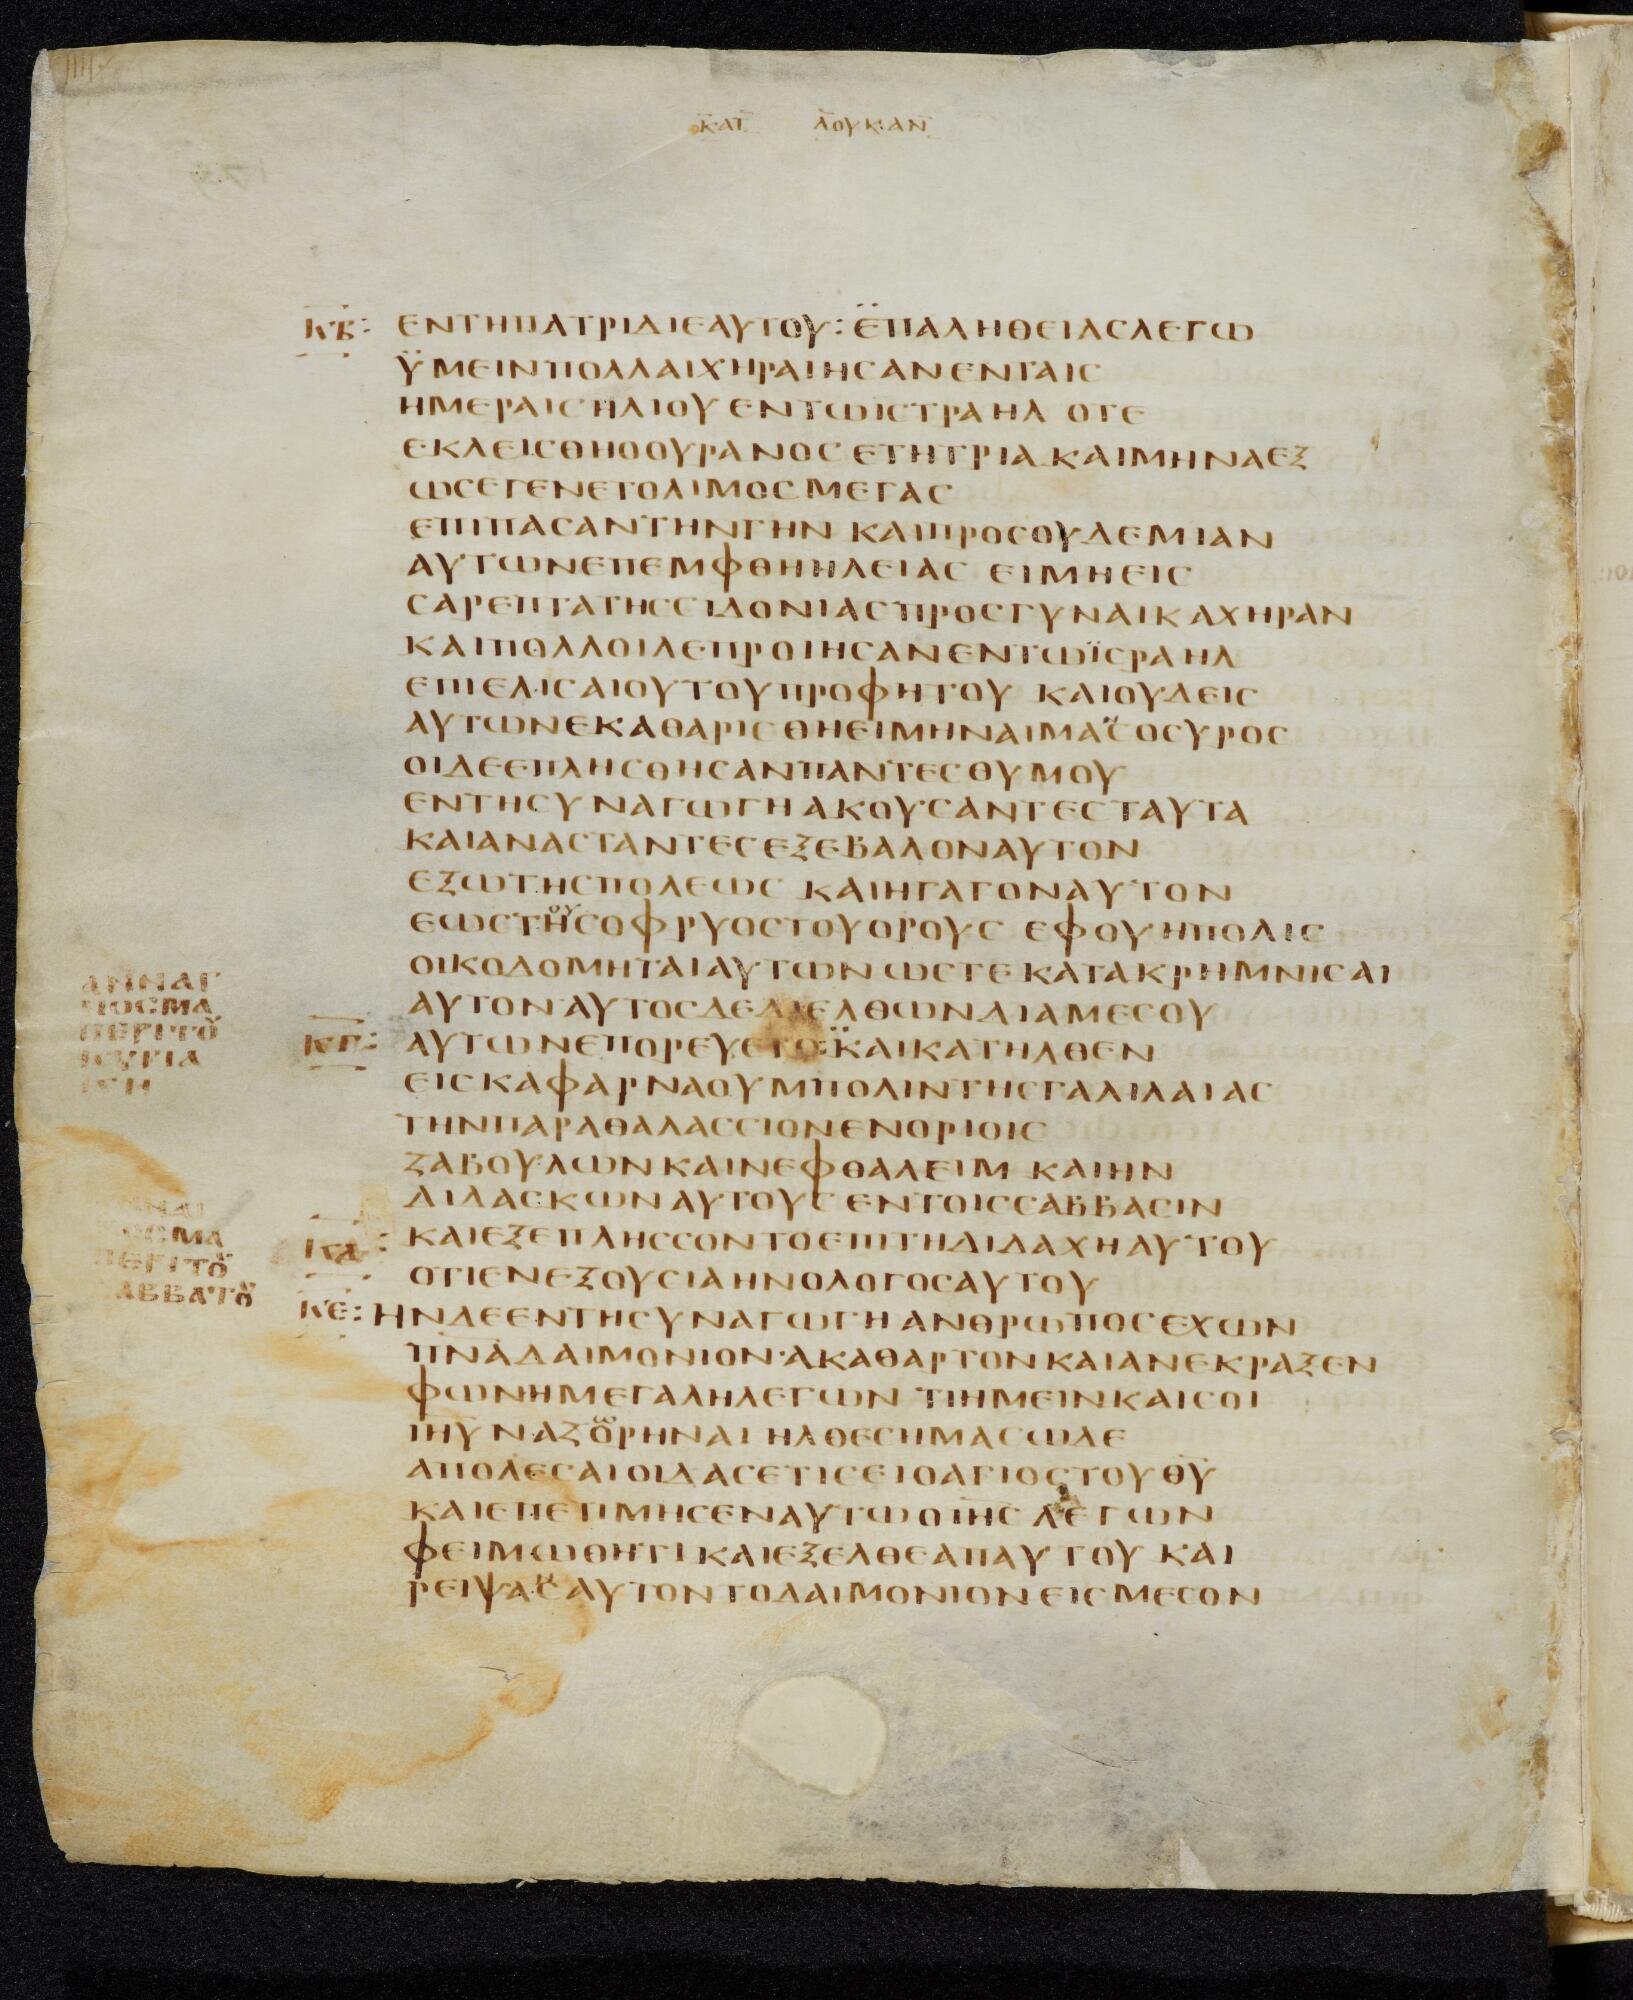 ΚΑΤ ΛΟΥΚΑΝ
ΚΒ: ΕΝΤΗΠΑΤΡΙΔΙΕΑΥΤΟΥ: ΕΠΑΛΗΘΕΙΑΣΛΕΓΩ
ΫΜΕΙΝΠΟΛΛΑΙΧΗΡΑΙΗΣΑΝΕΝΤΑΙΣ
ΗΜΕΡΑΙΣΗΛΙΟΥΕΝΤΩΙΣΤΡΑΗΛ ΟΤΕ
ΕΚΛΕΙΣΘΗΟΟΥΡΑΝΟΣ ΕΤΗΤΡΙΑ ΚΑΙΜΗΝΑΕΞ
ΩΣΕΓΕΝΕΤΟΛΙΜΟΣ ΜΕΓΑΣ
ΕΠΙΠΑΣΑΝΤΗΝΓΗΝ ΚΑΙΠΡΟΣΟΥΔΕΜΙΑΝ
ΑΥΤΩΝΕΠΕΜΦΘΗΗΛΕΙΑΣ ΕΙΜΗΕΙΣ
ΣΑΡΕΠΤΑΤΗΣΣΙΔΟΝΙΑΣΠΡΟΣΓΥΝΑΙΚΑΧΗΡΑΝ
ΚΑΙΠΟΛΛΟΙΛΕΠΡΟΙΗΣΑΝΕΝΤΩΪΣΡΑΗΛ
ΕΠΙΕΛΙΣΑΙΟΥΤΟΥΠΡΟΦΗΤΟΥ ΚΑΙΟΥΔΕΙΣ
ΑΥΤΩΝΕΚΑΘΑΡΙΣΘΗΕΙΜΗΝΑΙΜΑΣΟΣΥΡΟΣ
ΟΙΔΕΕΠΛΗΣΘΗΣΑΝΠΑΝΤΕΣΘΥΜΟΥ
ΕΝΤΗΣΥΝΑΓΩΓΗΑΚΟΥΣΑΝΤΕΣΤΑΥΤΑ
ΚΑΙΑΝΑΣΤΑΝΤΕΣΕΞΕΒΑΛΟΝΑΥΤΟΝ
ΕΞΩΤΗΣΠΟΛΕΩΣ ΚΑΙΗΓΑΓΟΝΑΥΤΟΝ
ΕΩΣΤΗΣΟΦΡΥΟΣΤΟΥΟΡΟΥΣ ΕΦΟΥΗΠΟΛΙΣ
ΟΙΚΟΔΟΜΗΤΑΙΑΥΤΩΝΩΣΤΕΚΑΤΑΚΡΗΜΝΙΣΑΙ
ΑΥΤΟΝΑΥΤΟΣΔΕΔΙΕΛΘΩΝΔΙΑΜΕΣΟΥ
ΚΓ: ΑΥΤΩΝΕΠΟΡΕΥΕΤΟ:ΚΑΙΚΑΤΗΛΘΕΝ
ΕΙΣΚΑΦΑΡΝΑΟΥΜΠΟΛΙΝΤΗΣΓΑΛΙΛΑΙΑΣ
ΤΗΝΠΑΡΑΘΑΛΑΣΣΙΟΝΕΝΟΡΙΟΙΣ
ΖΑΒΟΥΛΩΝΚΑΙΝΕΦΘΑΛΕΙΜ ΚΑΙΗΝ
ΔΙΔΑΣΚΩΝΑΥΤΟΥΣΕΝΤΟΙΣΣΑΒΒΑΣΙΝ
ΚΔ: ΚΑΙΕΞΕΠΛΗΣΣΟΝΤΟΕΠΙΤΗΔΙΔΑΧΗΑΥΤΟΥ
ΟΤΙΕΝΕΞΟΥΣΙΑΗΝΟΛΟΓΟΣΑΥΤΟΥ
ΚΕ: ΗΝΔΕΕΝΤΗΣΥΝΑΓΩΓΗΑΝΘΡΩΠΟΣΕΧΩΝ
ΠΝΑΔΑΙΜΟΝΙΟΝ·ΑΚΑΘΑΡΤΟΝΚΑΙΑΝΕΚΡΑΞΕΝ
ΦΩΝΗΜΕΓΑΛΗΛΕΓΩΝ ΤΙΗΜΕΙΝΚΑΙΣΟΙ
ΙΗΥΝΑΖΟΡΗΝΑΙ ΗΛΘΕΣΗΜΑΣΩΔΕ
ΑΠΟΛΕΣΑΙΟΙΔΑΣΕΤΙΣΕΙΟΑΓΙΟΣΤΟΥΘΥ
ΚΑΙΕΠΕΤΙΜΗΣΕΝΑΥΤΩΟΙΗΣ ΛΕΓΩΝ
ΦΕΙΜΩΘΗΤΙ ΚΑΙΕΞΕΛΘΕΑΠΑΥΤΟΥ ΚΑΙ
ΡΕΙΨΑΣΑΥΤΟΝΤΟΔΑΙΜΟΝΙΟΝΕΙΣΜΕΣΟΝ
ΑΝΝΑΓ
ΝΟΣΜΑ
ΠΕΡΙΤΟ
ΚΥΡΙΑ
ΚΗ
ΟΣΜΑ
ΠΕΡΙΤΟ
ΣΑΒΒΑΤΟ